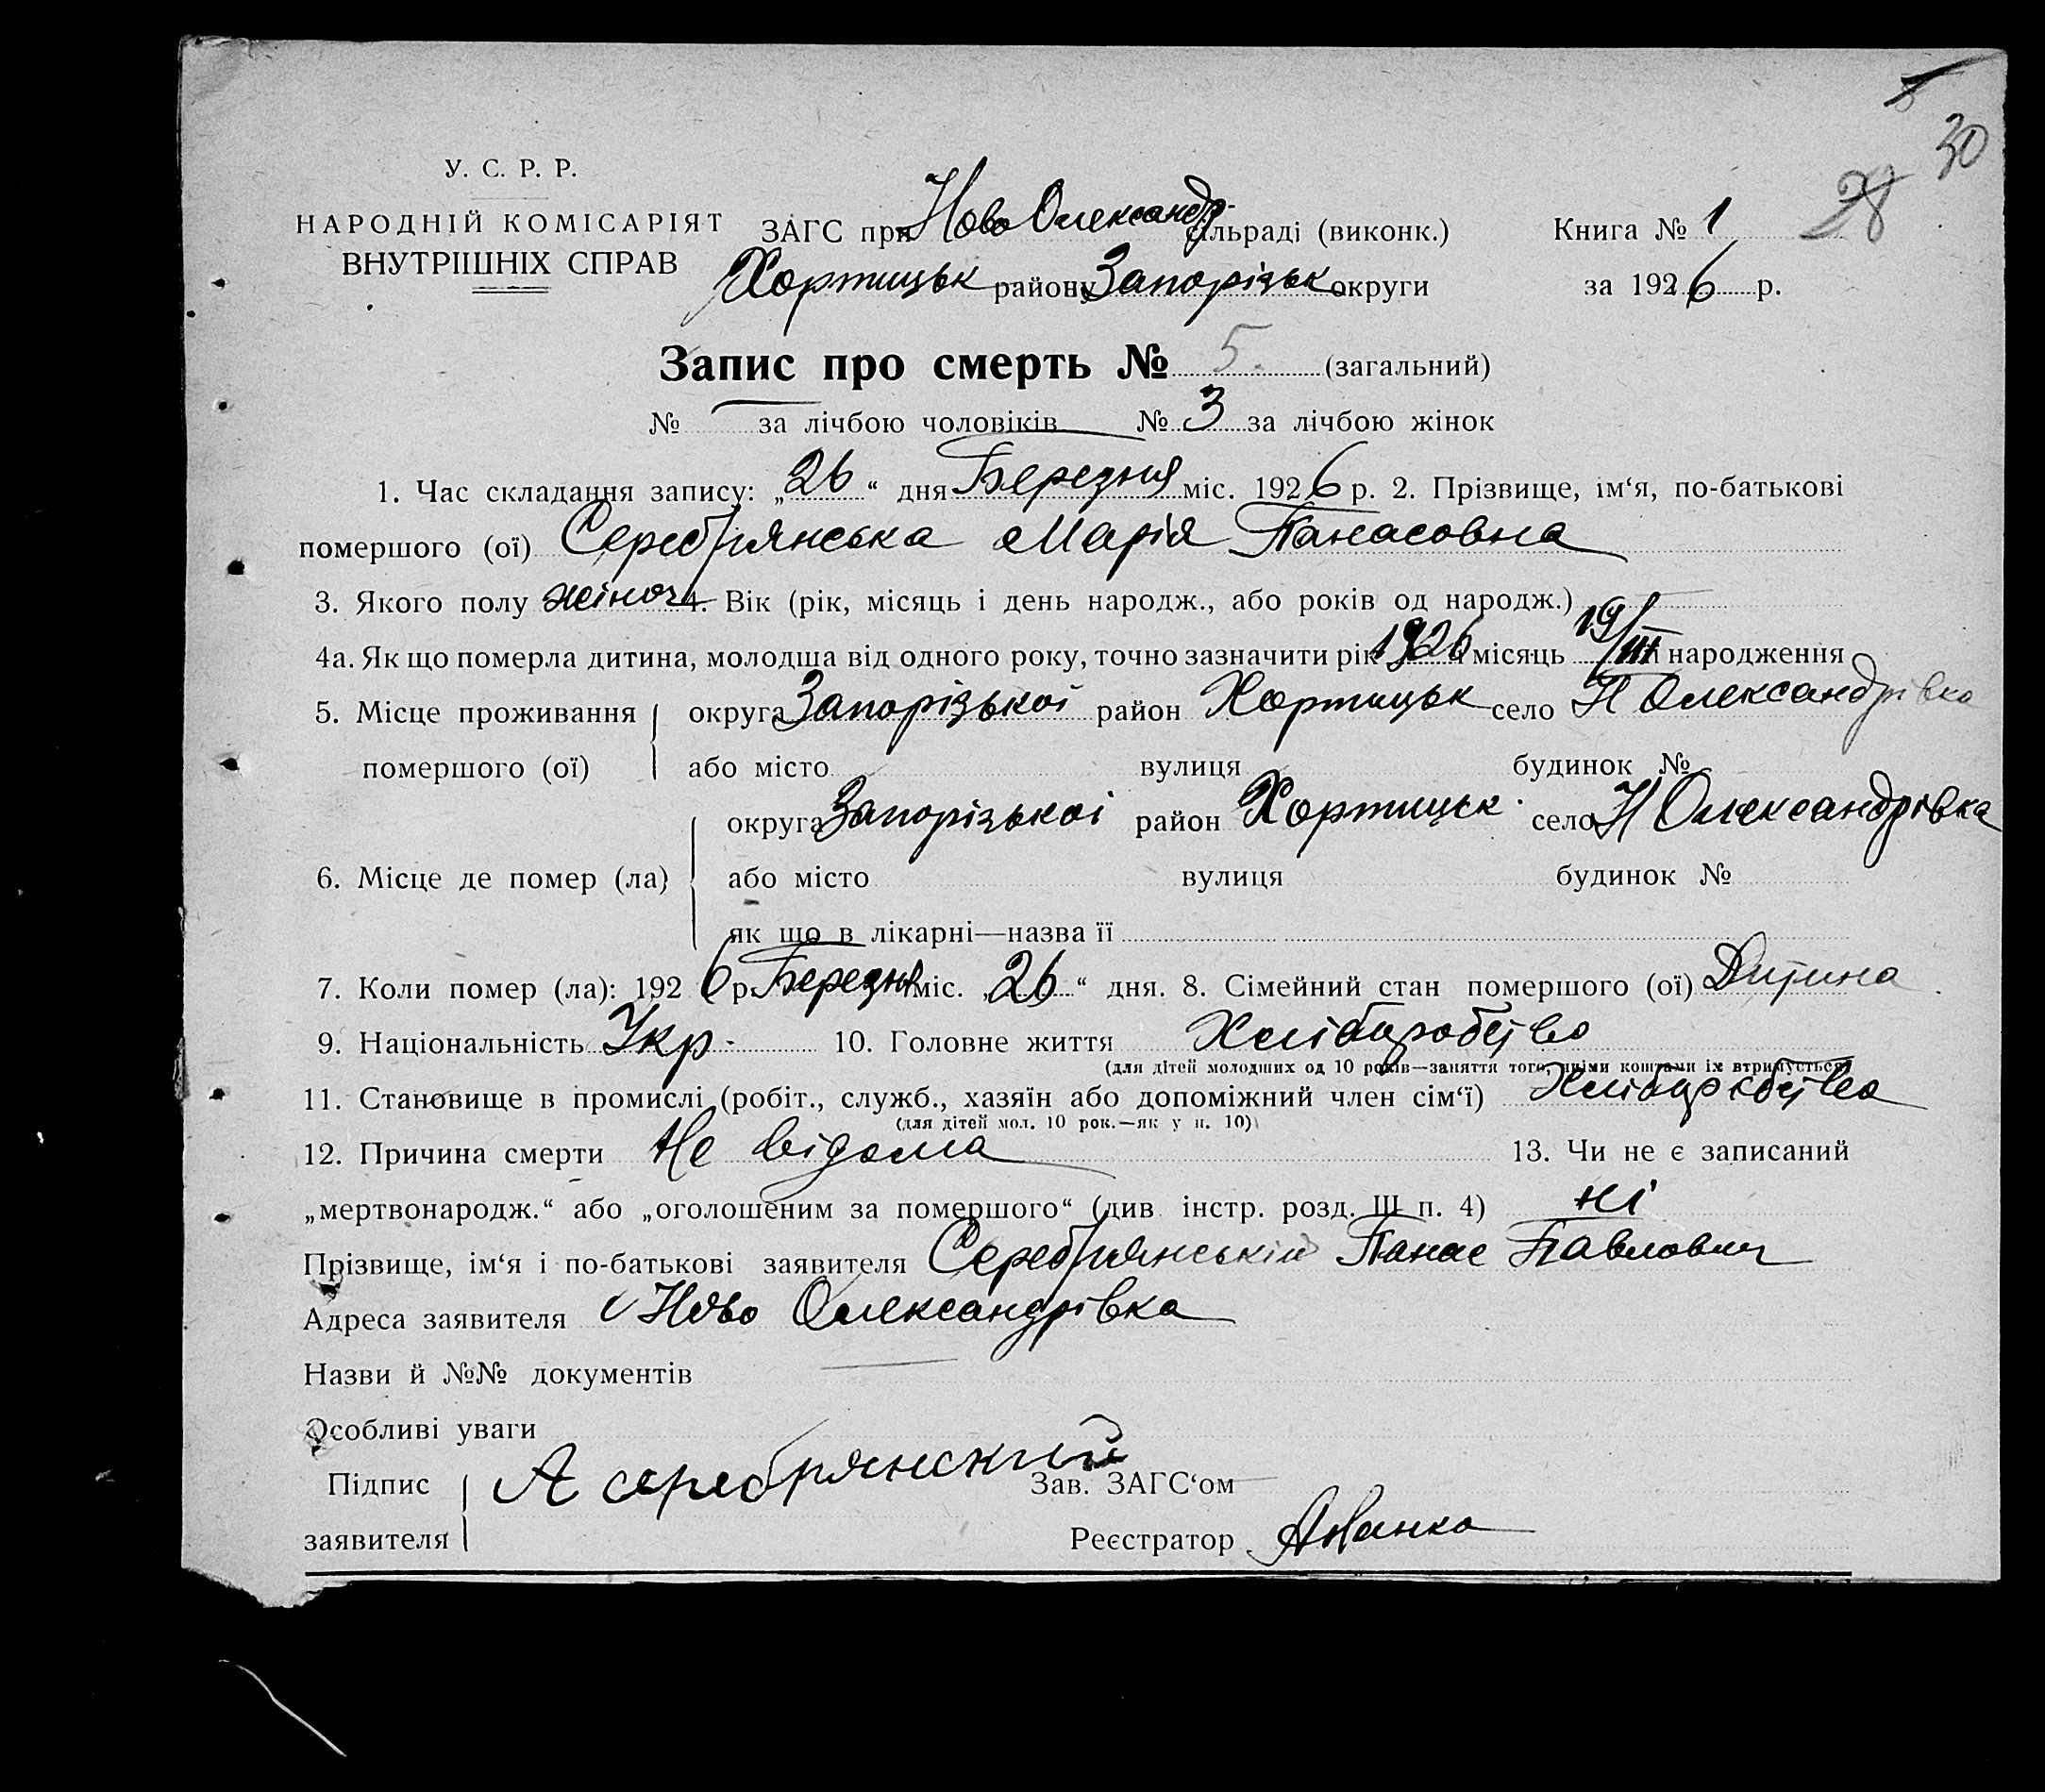 5
30
28
У. С. Р. Р.
НАРОДНІЙ КОМІСАРІЯТ
ВНУТРІШНІХ СПРАВ
ЗАГС при Ново Олександр. сільраді (виконк.) Книга № 1
Хортицьк району Запорізьк округи за 1926 р.
Запис про смерть № 5. (загальний)
№ — за лічбою чоловіків № 3 за лічбою жінок
1. Час складання запису: „26“ дня Березня міс. 1926 р. 2. Прізвище, ім‘я, по-батькові
помершого (ої) Серебрянська Марія Панасовна
3. Якого полу жіноч 4. Вік (рік, місяць і день народж., або років од народж.)
4а. Як що померла дитина, молодша від одного року, точно зазначити рік 1926 місяць 19/III народження
5. Місце проживання округа Запорізькоі район Хортицьк село Н Олександрівка
помершого (ої) або місто вулиця будинок №
округа Запорізькоі район Хортицьк. село Н Олександрівка
6. Місце де помер (ла) або місто вулиця будинок №
як що в лікарні—назва її
7. Коли помер (ла): 1926 р. Березня міс. „26“ дня. 8. Сімейний стан помершого (ої) Дитина
9. Національність Укр. 10. Головне життя Хліборобство
(для дітей молодших од 10 років—заняття того, чиїми коштами їх втримується)
11. Становище в промислі (робіт., служб., хазяїн або допоміжний член сім‘ї) Хліборобство
(для дітей мол. 10 рок.—як у п. 10)
12. Причина смерти Не відома 13. Чи не є записаний
„мертвонародж.“ або „оголошеним за помершого“ (див інстр. розд. III п. 4) ні
Прізвище, ім‘я і по-батькові заявителя Серебрянській Панас Павлович
Адреса заявителя Ново Олександрівка
Назви й №№ документів —
Особливі уваги
Підпис А серебрянский Зав. ЗАГС‘ом
заявителя Реєстратор